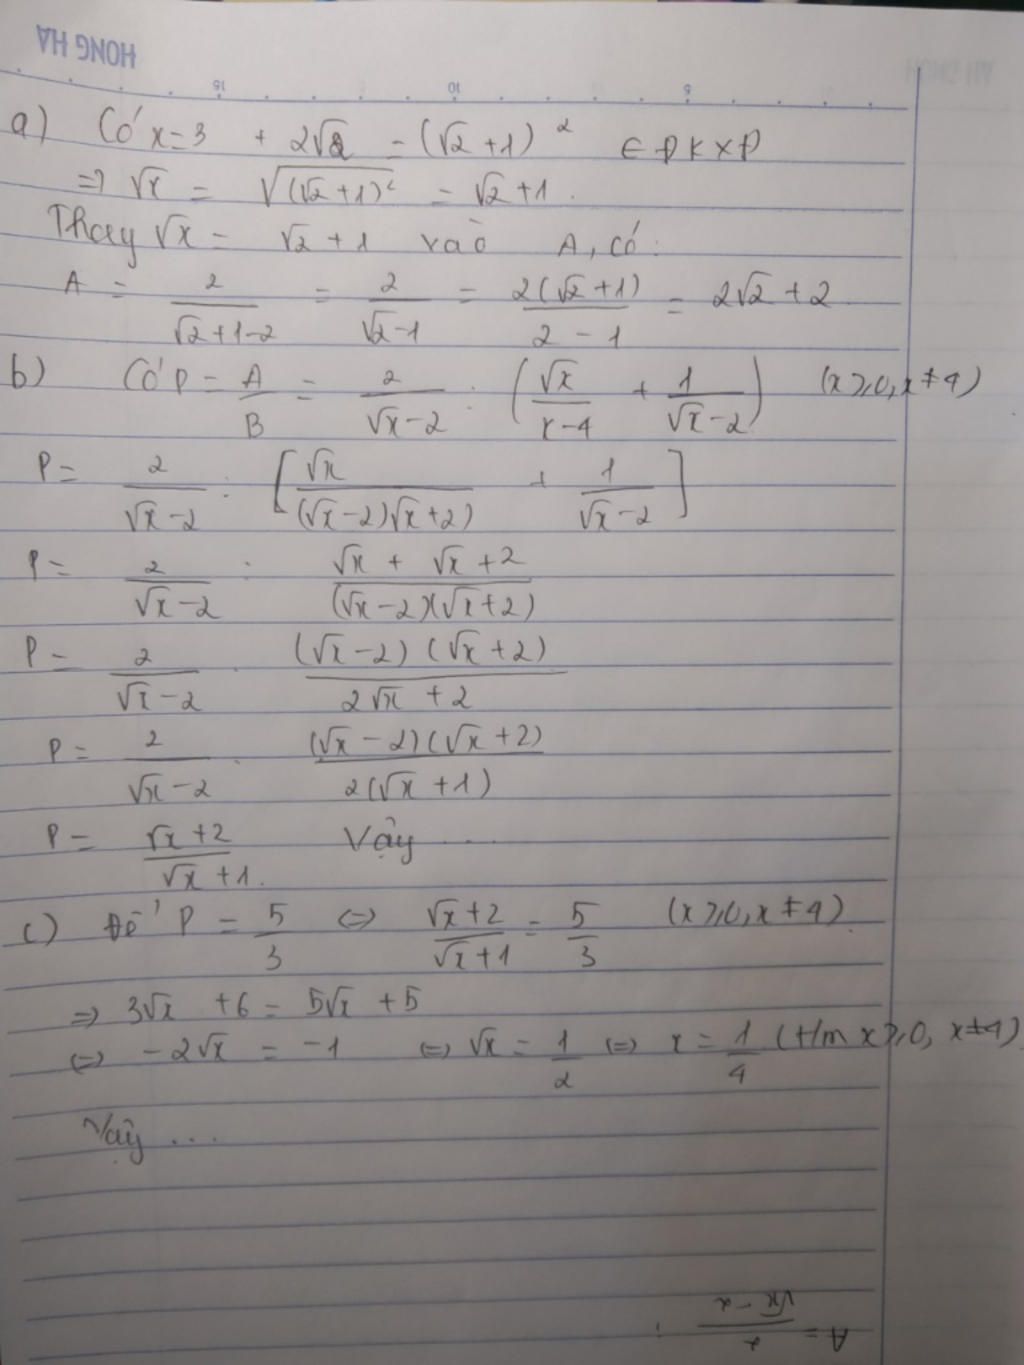 HONG HA
15 10 5
a) Có x=3 + 2√2 = (√2+1)² ∈ ĐKXĐ
=> √x = √(√2+1)² = √2+1.
Thay √x = √2+1 vào A, có:
A = 2/(√2+1-2) = 2/(√2-1) = 2(√2+1)/(2-1) = 2√2+2
b) Có P = A/B = 2/(√x-2) : (√x/(x-4) + 1/(√x-2)) (x≥0, x≠4)
P = 2/(√x-2) : [√x/((√x-2)√x+2) + 1/(√x-2)]
P = 2/(√x-2) : (√x + √x+2)/((√x-2)(√x+2))
P = 2/(√x-2) . (√x-2)(√x+2)/(2√x+2)
P = 2/(√x-2) . (√x-2)(√x+2)/(2(√x+1))
P = (√x+2)/(√x+1). Vậy ....
c) Để P = 5/3 <=> (√x+2)/(√x+1) = 5/3 (x≥0, x≠4)
=> 3√x + 6 = 5√x + 5
<=> -2√x = -1 <=> √x = 1/2 <=> x = 1/4 (t/m x≥0, x≠4)
Vậy ...
A = 2/(√x-2) ;